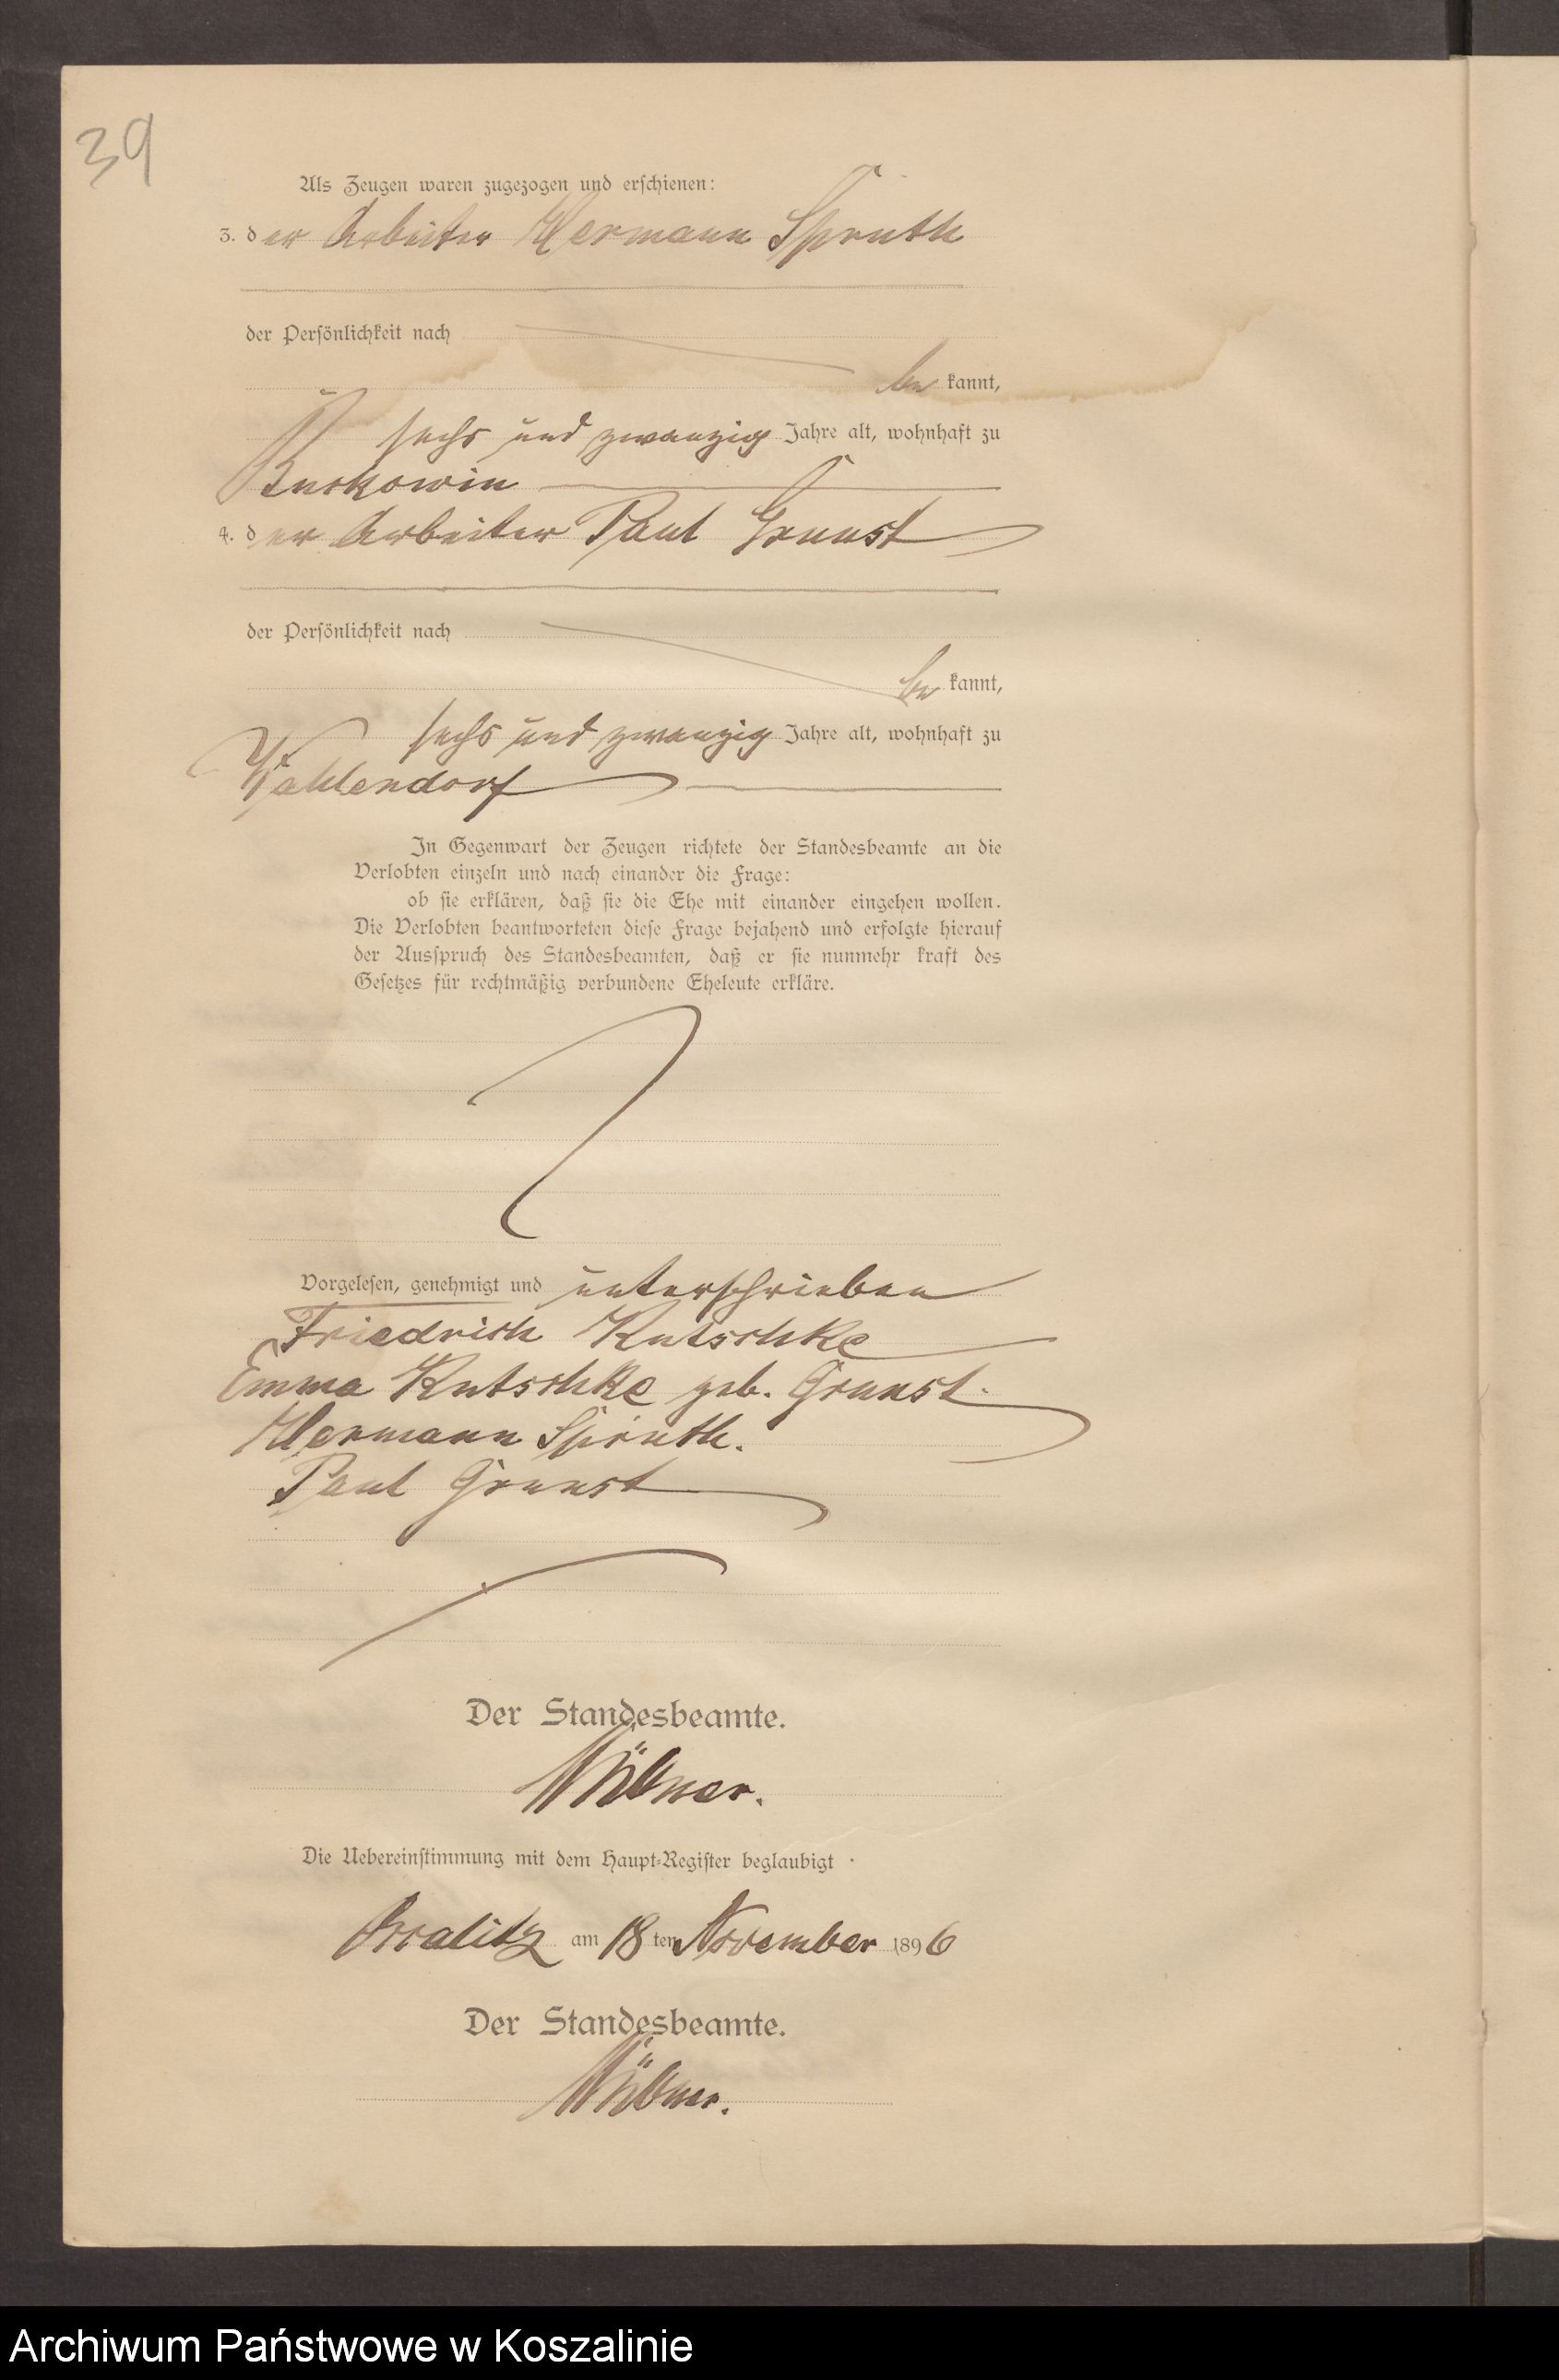 39
Als Zeugen waren zugezogen und erschienen:
3. der Arbeiter Hermann Spruth
der Persönlichkeit nach
be kannt,
sechs und zwanzig Jahre alt, wohnhaft zu
Buckowin
4. der Arbeiter Paul Grunst
der Persönlichkeit nach
be kannt,
sechs und zwanzig Jahre alt, wohnhaft zu
Wahlendorf
In Gegenwart der Zeugen richtete der Standesbeamte an die
Verlobten einzeln und nach einander die Frage:
ob sie erklären, daß sie die Ehe mit einander eingehen wollen.
Die Verlobten beantworteten diese Frage bejahend und erfolgte hierauf
der Ausspruch des Standesbeamten, daß er sie nunmehr kraft des
Gesetzes für rechtmäßig verbundene Eheleute erkläre.
Vorgelesen, genehmigt und unterschrieben
Friedrich Kutschke
Emma Kutschke geb. Grunst.
Hermann Spruth.
Paul Grunst
Der Standesbeamte.
Die Uebereinstimmung mit dem Haupt-Register beglaubigt
am 18ten November 1896
Der Standesbeamte.
Archiwum Państwowe w Koszalinie